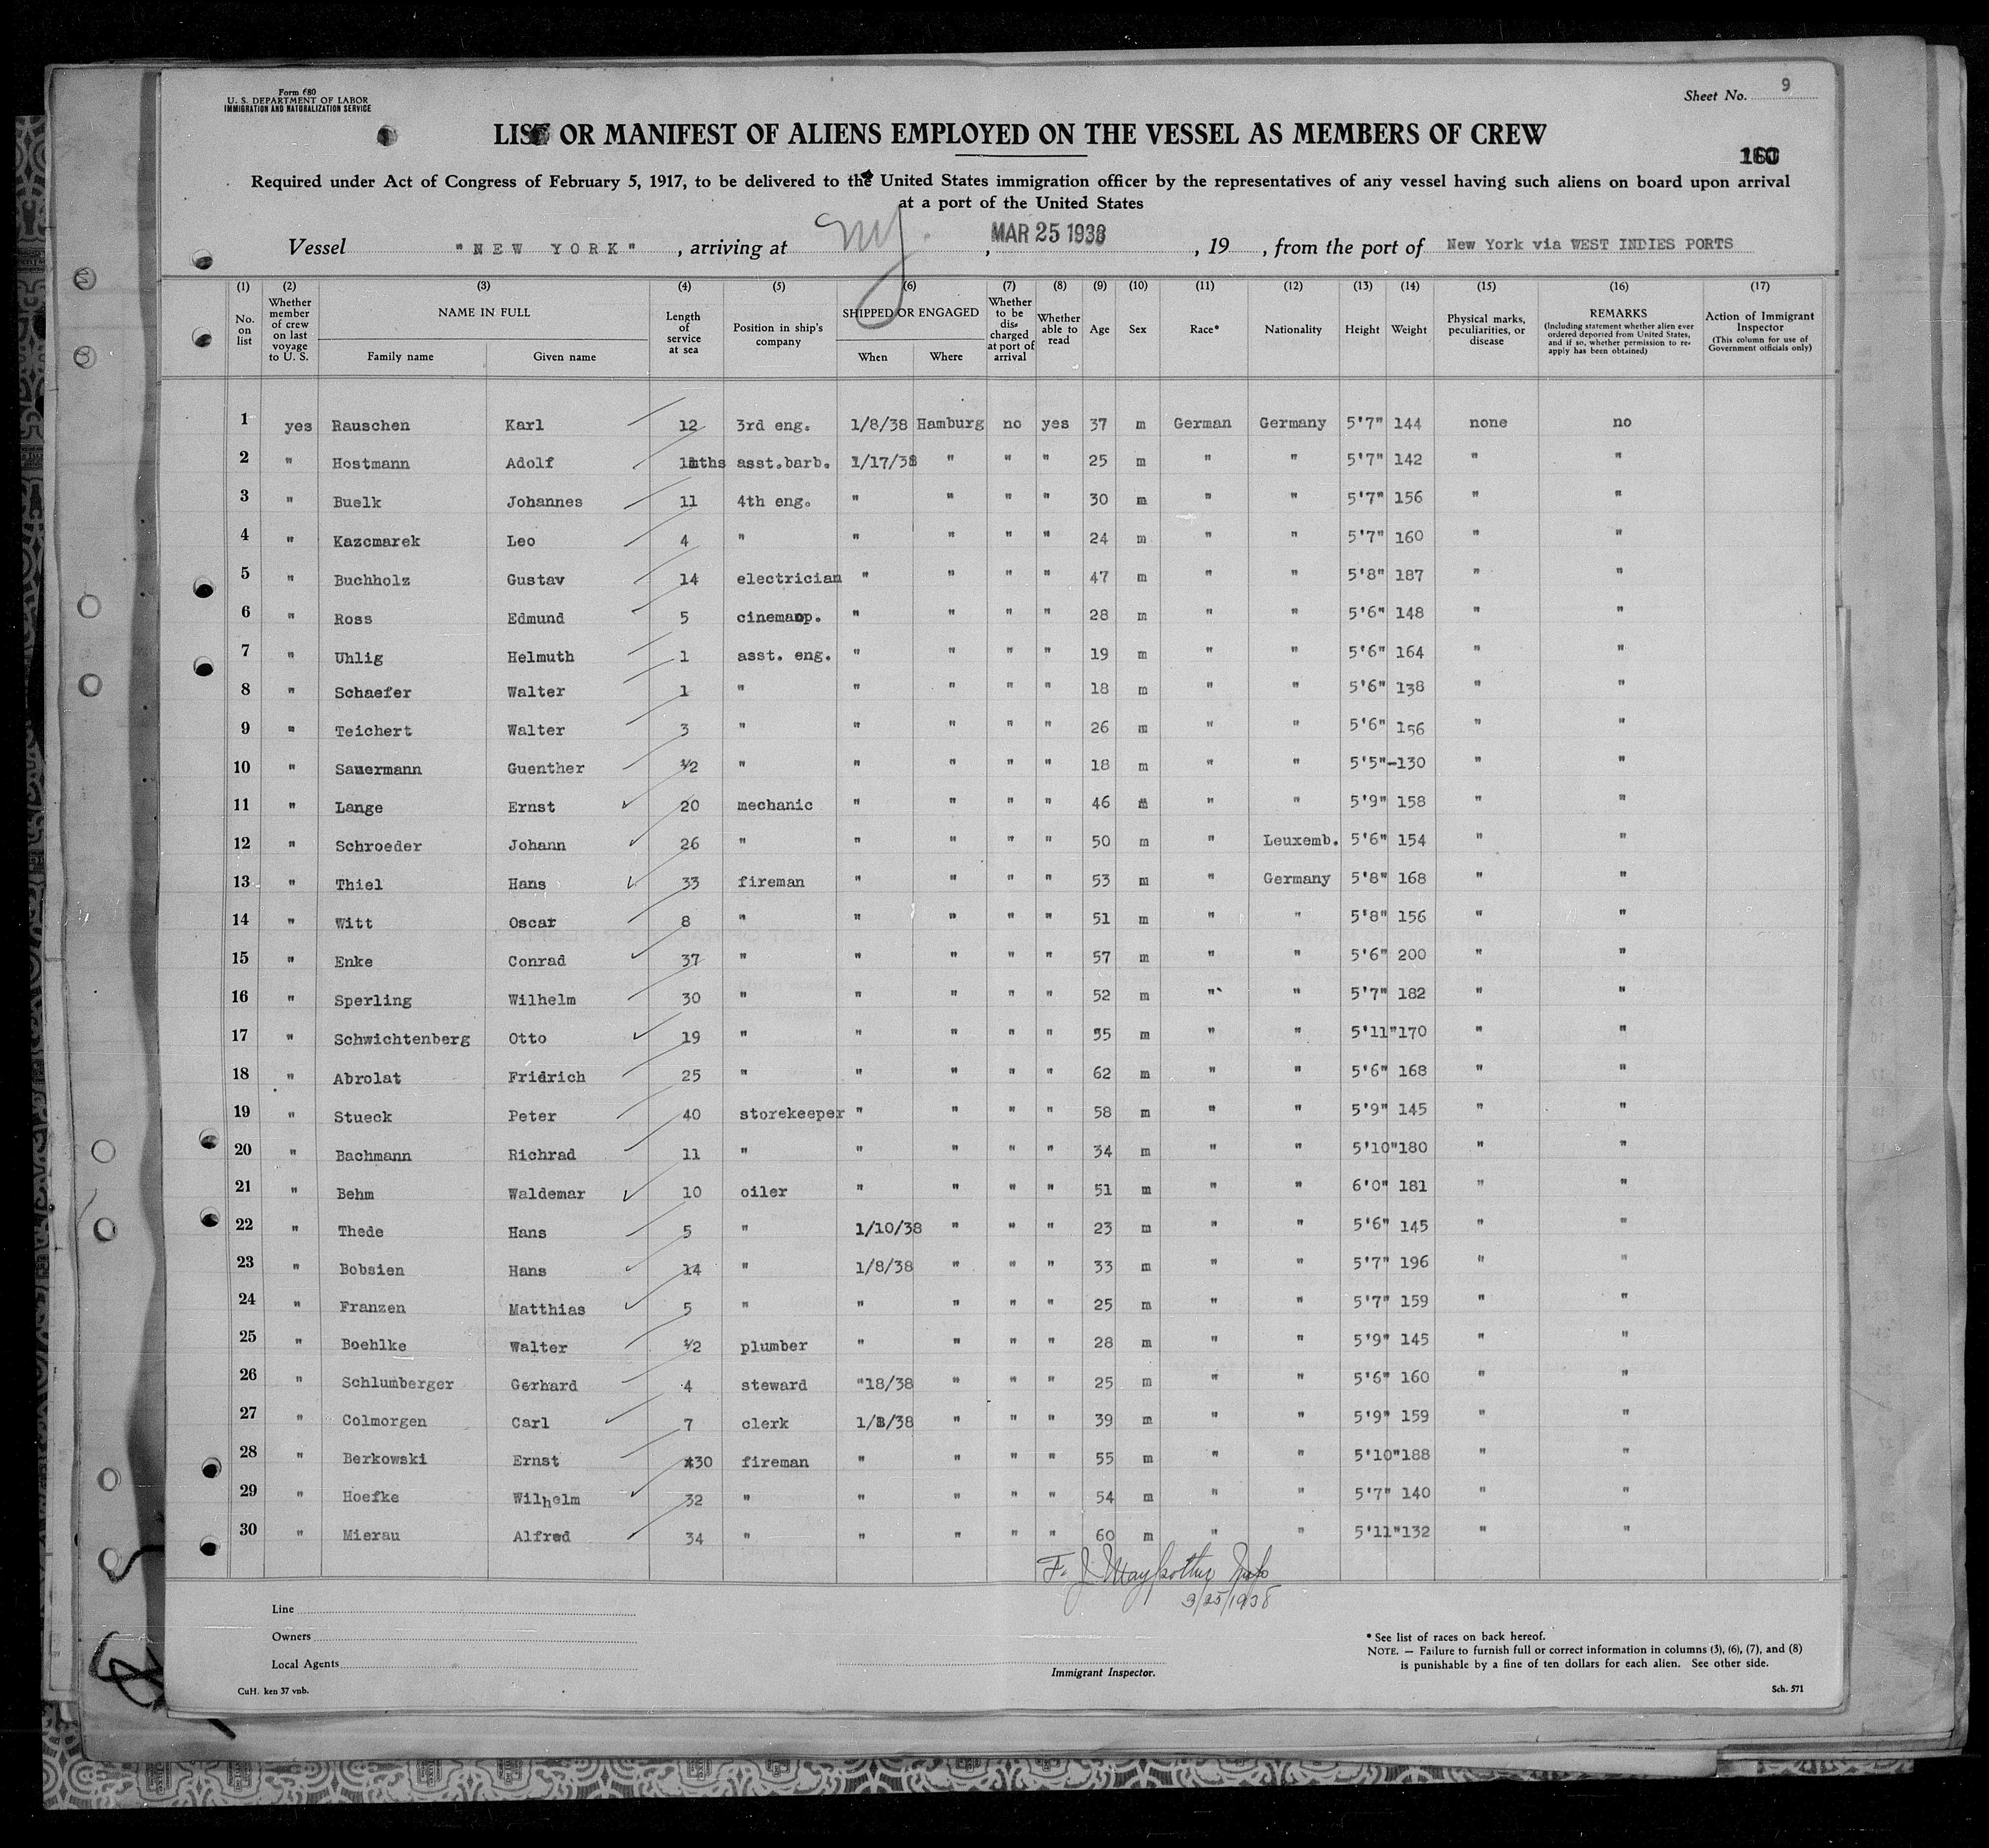 Form 680
U. S. DEPARTMENT OF LABOR
IMMIGRATION AND NATURALIZATION SERVICE
Sheet No. 9
LIST OR MANIFEST OF ALIENS EMPLOYED ON THE VESSEL AS MEMBERS OF CREW
160
Required under Act of Congress of February 5, 1917, to be delivered to the United States immigration officer by the representatives of any vessel having such aliens on board upon arrival
at a port of the United States
Vessel "NEW YORK", arriving at NY., MAR 25 1938, 19, from the port of New York via WEST INDIES PORTS
(1) (2) (3) (4) (5) (6) (7) (8) (9) (10) (11) (12) (13) (14) (15) (16) (17)
No. on list
Whether member of crew on last voyage to U. S.
NAME IN FULL
Family name Given name
Length of service at sea
Position in ship's company
SHIPPED OR ENGAGED
When Where
Whether to be discharged at port of arrival
Whether able to read
Age
Sex
Race*
Nationality
Height
Weight
Physical marks, peculiarities, or disease
REMARKS
(Including statement whether alien ever ordered deported from United States, and if so, whether permission to reapply has been obtained)
Action of Immigrant Inspector
(This column for use of Government officials only)
1 yes Rauschen Karl 12 3rd eng. 1/8/38 Hamburg no yes 37 m German Germany 5'7" 144 none no
2 " Hostmann Adolf mths asst.barb. 1/17/38 " " " 25 m " " 5'7" 142 " "
3 " Buelk Johannes 11 4th eng. " " " " 30 m " " 5'7" 156 " "
4 " Kazcmarek Leo 4 " " " " " 24 m " " 5'7" 160 " "
5 " Buchholz Gustav 14 electrician " " " " 47 m " " 5'8" 187 " "
6 " Ross Edmund 5 cinemaop. " " " " 28 m " " 5'6" 148 " "
7 " Uhlig Helmuth 1 asst. eng. " " " " 19 m " " 5'6" 164 " "
8 " Schaefer Walter 1 " " " " " 18 m " " 5'6" 138 " "
9 " Teichert Walter 3 " " " " " 26 m " " 5'6" 156 " "
10 " Sauermann Guenther 1/2 " " " " " 18 m " " 5'5"-130 " "
11 " Lange Ernst 20 mechanic " " " " 46 m " " 5'9" 158 " "
12 " Schroeder Johann 26 " " " " " 50 m " Leuxemb. 5'6" 154 " "
13 " Thiel Hans 33 fireman " " " " 53 m " Germany 5'8" 168 " "
14 " Witt Oscar 8 " " " " " 51 m " " 5'8" 156 " "
15 " Enke Conrad 37 " " " " " 57 m " " 5'6" 200 " "
16 " Sperling Wilhelm 30 " " " " " 52 m " " 5'7" 182 " "
17 " Schwichtenberg Otto 19 " " " " " 55 m " " 5'11" 170 " "
18 " Abrolat Fridrich 25 " " " " " 62 m " " 5'6" 168 " "
19 " Stueck Peter 40 storekeeper " " " " 58 m " " 5'9" 145 " "
20 " Bachmann Richrad 11 " " " " " 34 m " " 5'10" 180 " "
21 " Behm Waldemar 10 oiler " " " " 51 m " " 6'0" 181 " "
22 " Thede Hans 5 " 1/10/38 " " " 23 m " " 5'6" 145 " "
23 " Bobsien Hans 14 " 1/8/38 " " " 33 m " " 5'7" 196 " "
24 " Franzen Matthias 5 " " " " " 25 m " " 5'7" 159 " "
25 " Boehlke Walter 1/2 plumber " " " " 28 m " " 5'9" 145 " "
26 " Schlumberger Gerhard 4 steward "18/38 " " " 25 m " " 5'6" 160 " "
27 " Colmorgen Carl 7 clerk 1/8/38 " " " 39 m " " 5'9" 159 " "
28 " Berkowski Ernst 30 fireman " " " " 55 m " " 5'10" 188 " "
29 " Hoefke Wilhelm 32 " " " " " 54 m " " 5'7" 140 " "
30 " Mierau Alfred 34 " " " " " 60 m " " 5'11" 132 " "
F. J.
3/25/1938
Line
Owners
Local Agents
Immigrant Inspector.
* See list of races on back hereof.
NOTE. — Failure to furnish full or correct information in columns (3), (6), (7), and (8)
is punishable by a fine of ten dollars for each alien. See other side.
CuH. ken 37 vnb.
Sch. 571